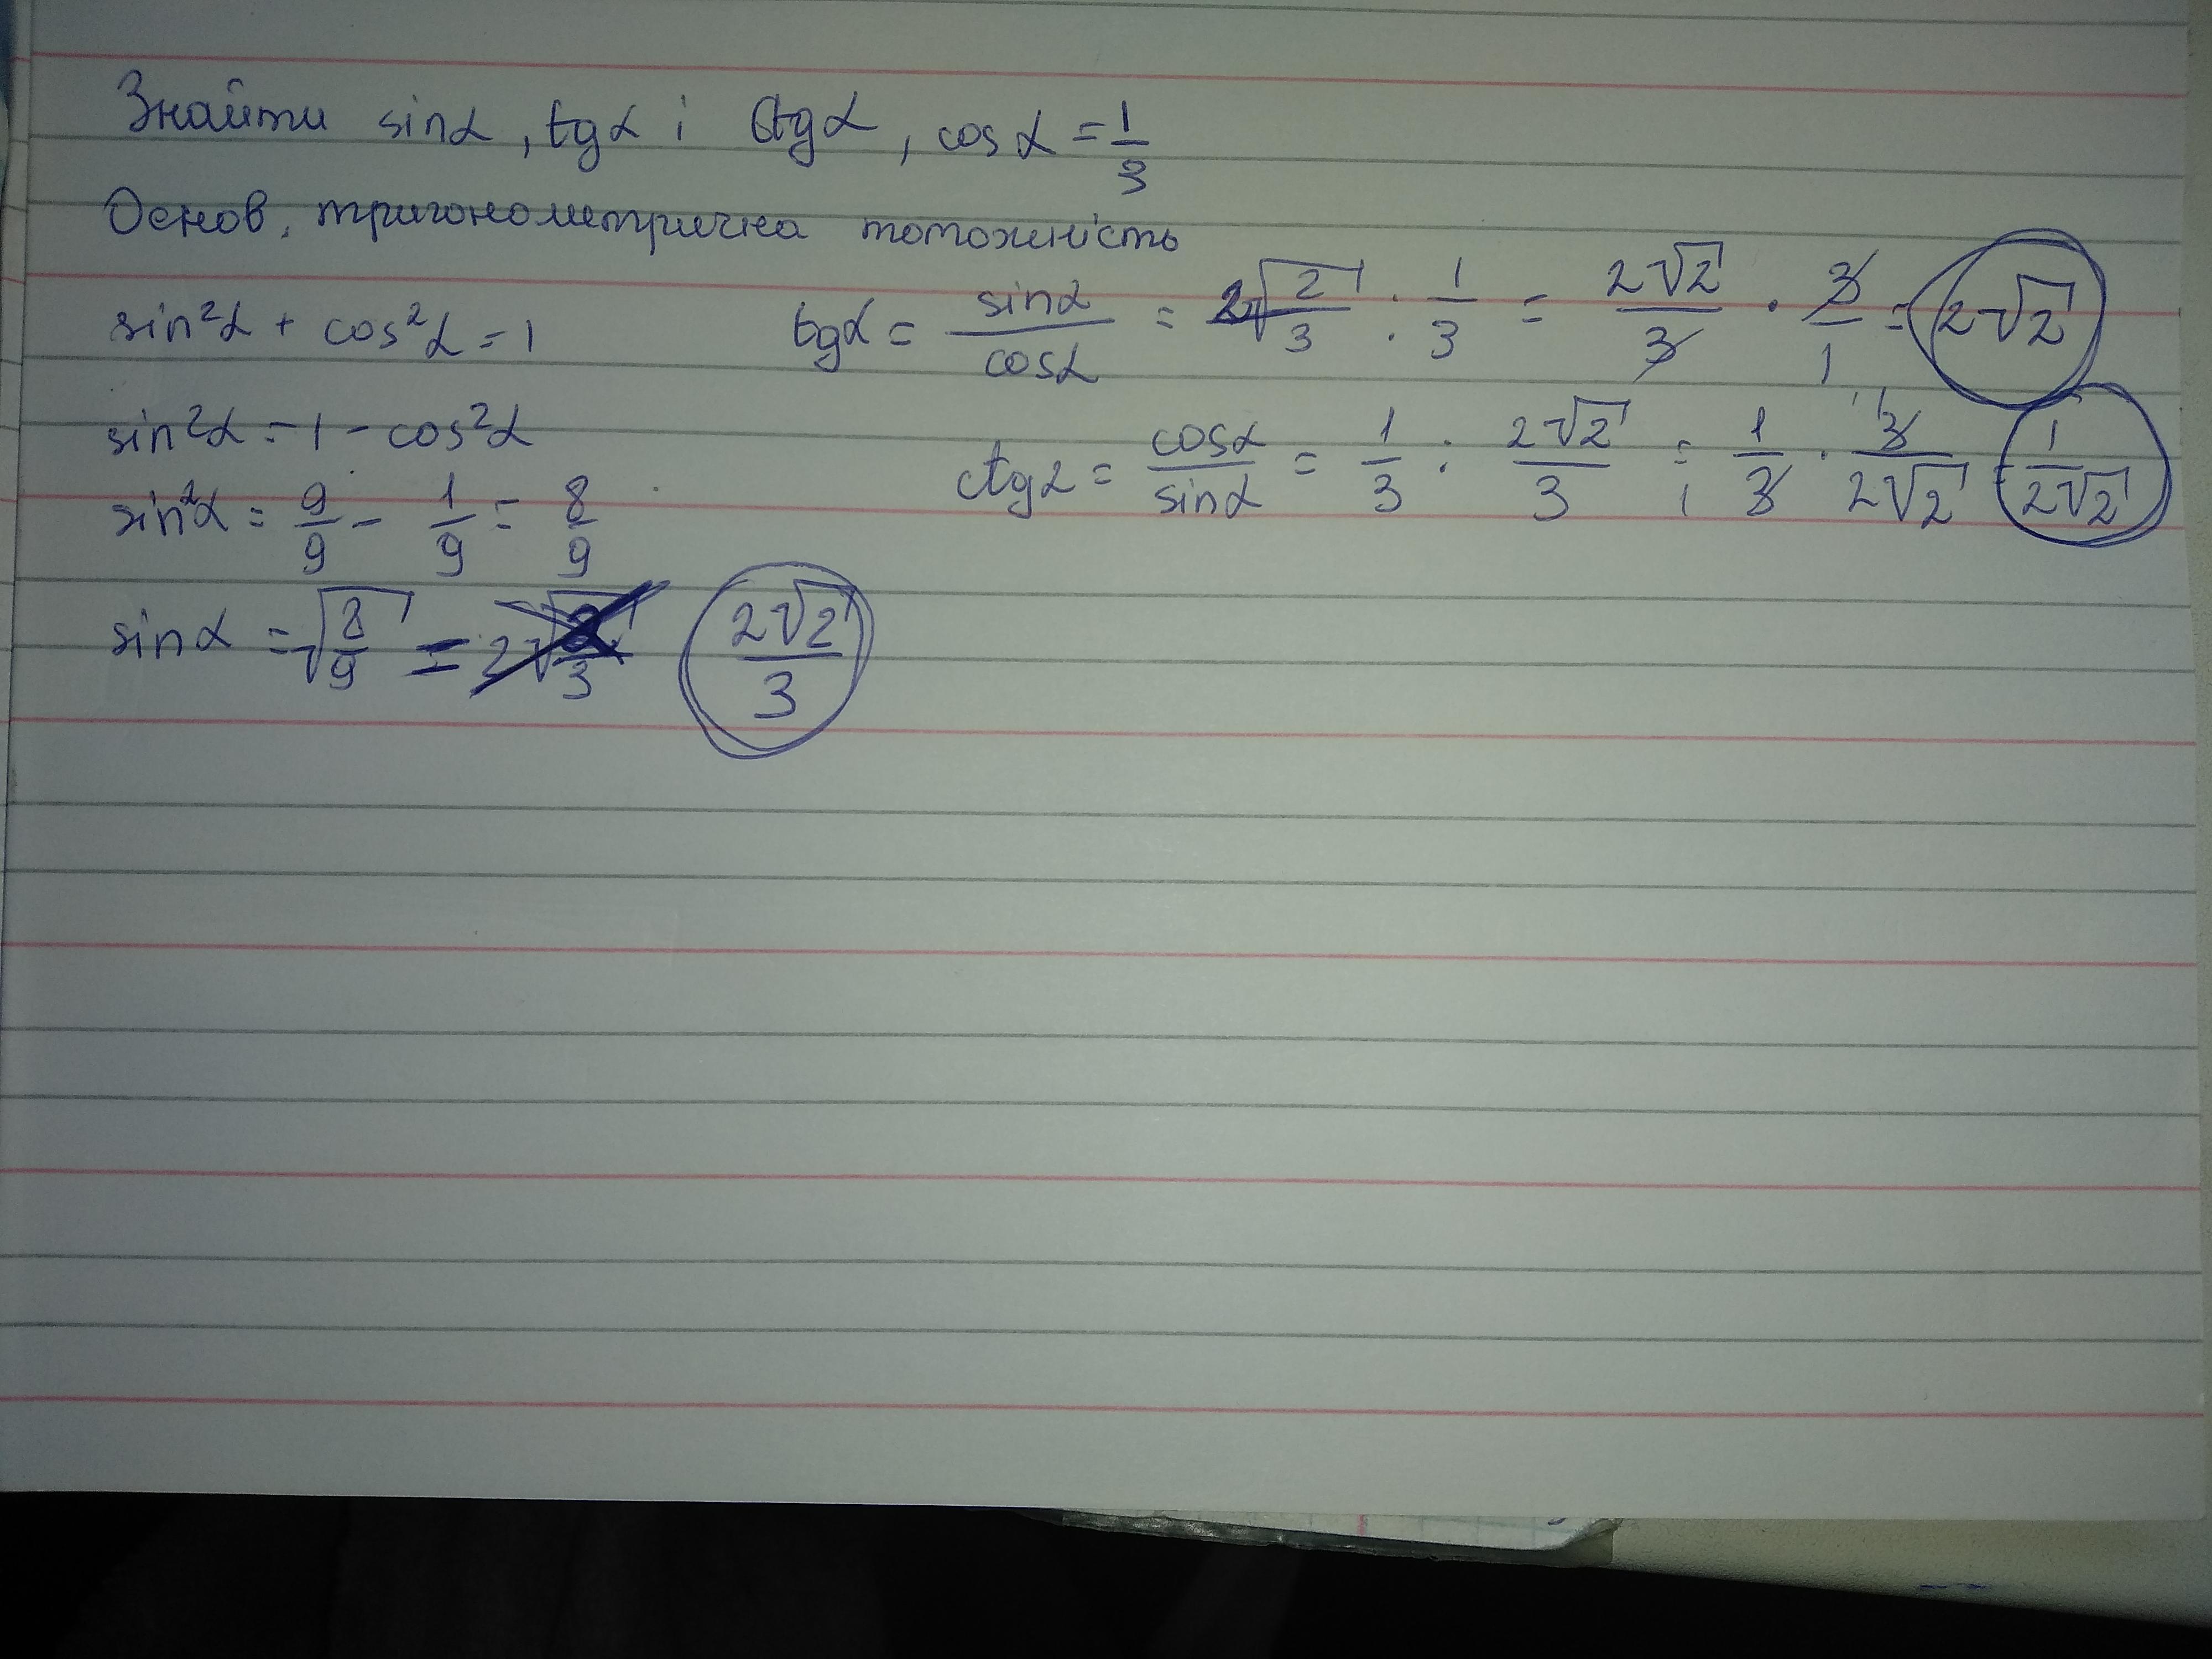 Знайти sinα, tgα і ctgα, cosα = 1/3
Основ. тригонометрична тотожність
sin²α + cos²α = 1
sin²α = 1 - cos²α
sin²α = 9/9 - 1/9 = 8/9
sinα = √(8/9) = 2√2/3
tgα = sinα/cosα = 2√2/3 : 1/3 = 2√2/3 · 3/1 = 2√2
ctgα = cosα/sinα = 1/3 : 2√2/3 = 1/3 · 3/2√2 = 1/2√2